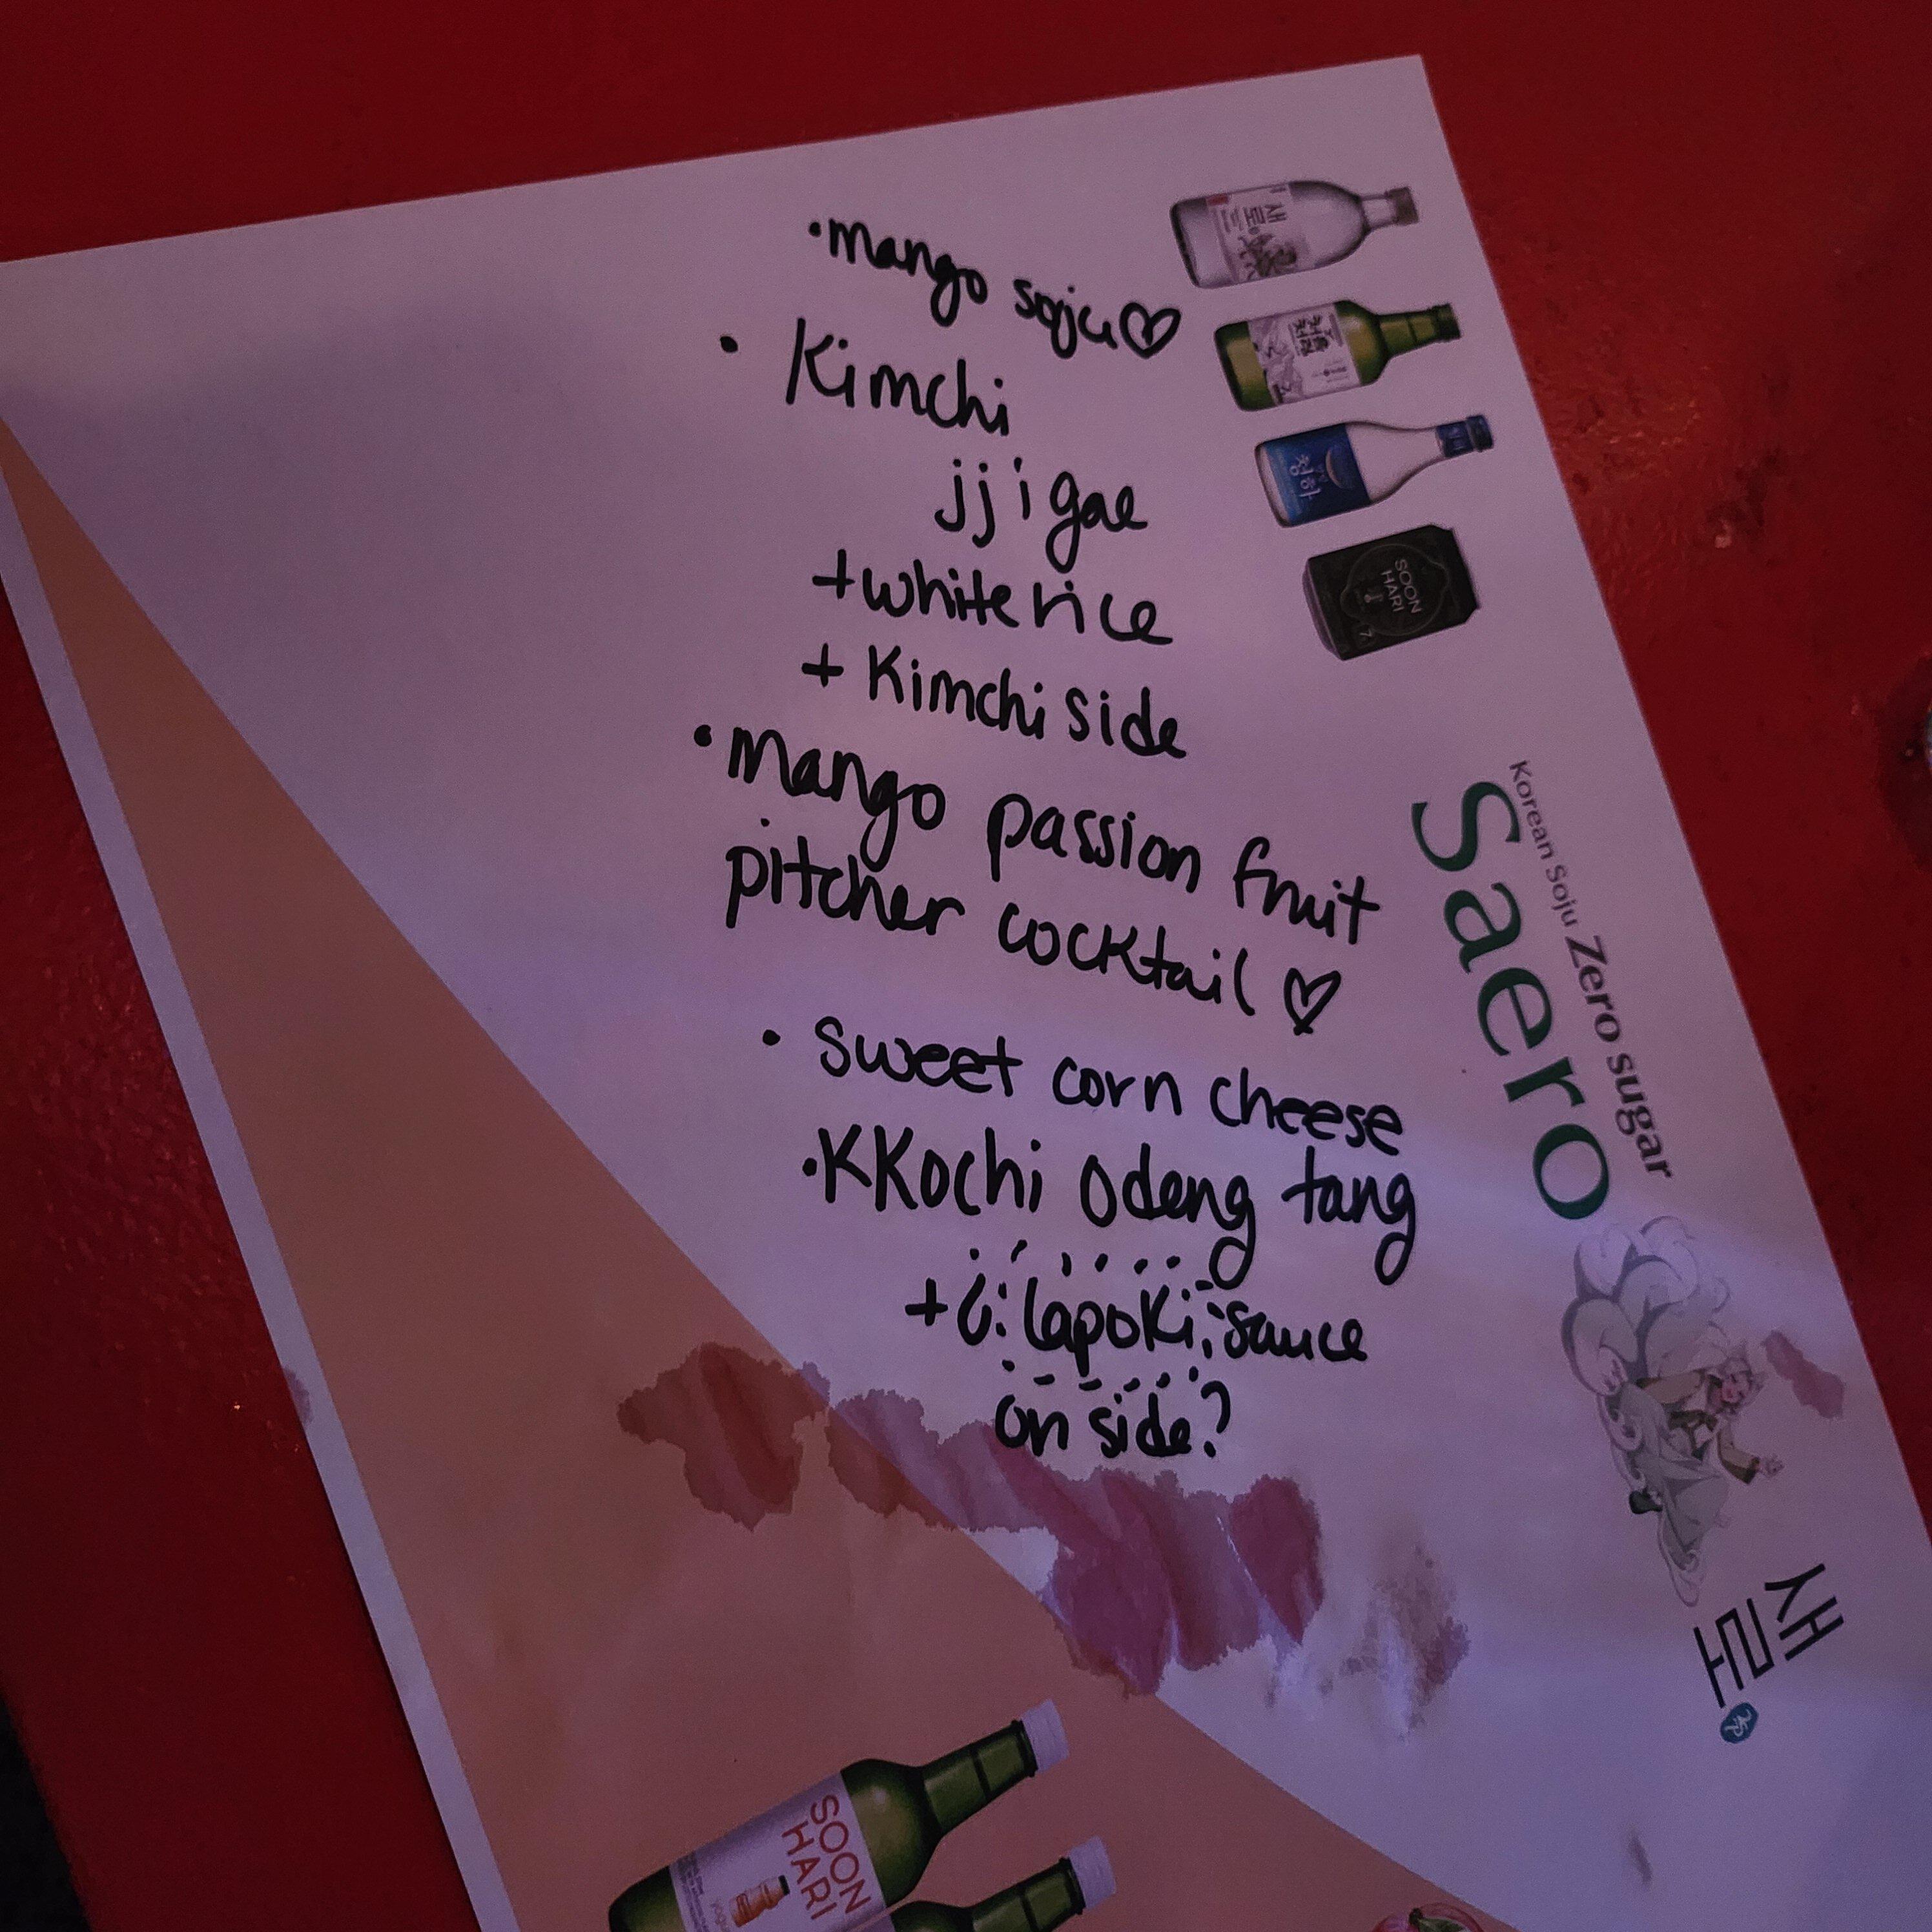 •mango soju♡
• Kimchi
jjigae
+white rice
+ Kimchi side
•Mango passion fruit
pitcher cocktail ♡
• sweet corn cheese
•KKochi Odeng tang
+ lapoki sauce
on side?
Korean Soju Zero sugar
Saero
새로
새로
처음처럼
청하
SOON
HARI
SOON
HARI